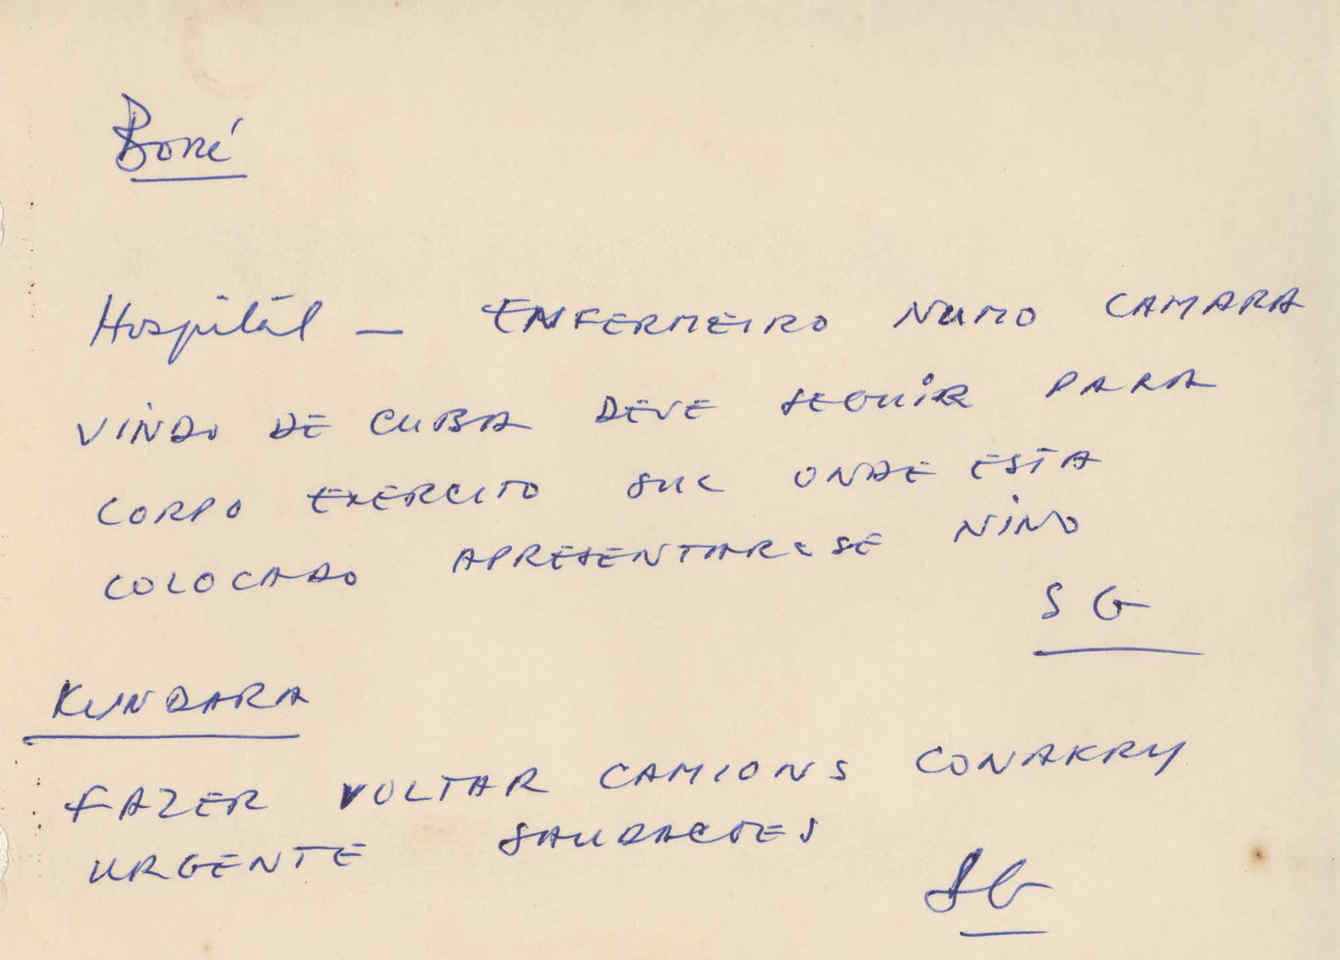 Boké
Hospital — ENFERMEIRO NUMO CAMARA
VINDO DE CUBA DEVE SEGUIR PARA
CORPO EXERCITO SUL ONDE ESTA
COLOCADO APRESENTAR-SE NINO
SG
KUNDARA
FAZER VOLTAR CAMIONS CONAKRY
URGENTE SAUDACOES
SG